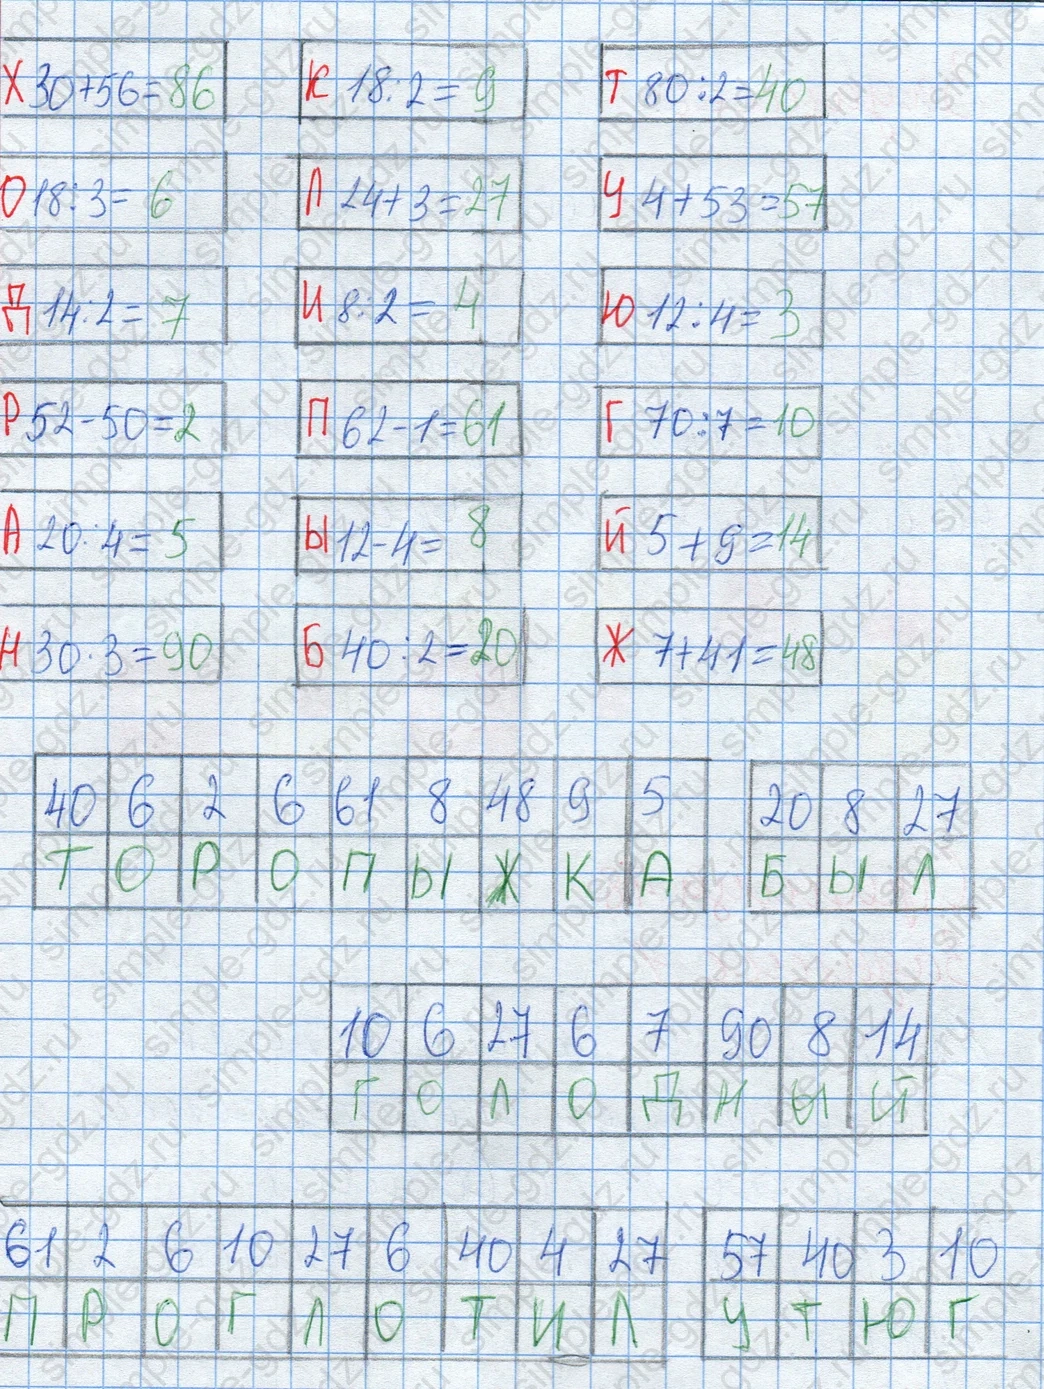 Х 30+56=86 К 18:2=9 Т 80:2=40
О 18:3=6 Л 24+3=27 У 4+53=57
Д 14:2=7 И 8:2=4 Ю 12:4=3
Р 52-50=2 П 62-1=61 Г 70:7=10
А 20:4=5 Ы 12-4=8 Й 5+9=14
Н 30·3=90 Б 40:2=20 Ж 7+41=48
40 6 2 6 61 8 48 9 5 20 8 27
Т О Р О П Ы Ж К А Б Ы Л
10 6 27 6 7 90 8 14
Г О Л О Д Н Ы Й
61 2 6 10 27 6 40 4 27 57 40 3 10
П Р О Г Л О Т И Л У Т Ю Г